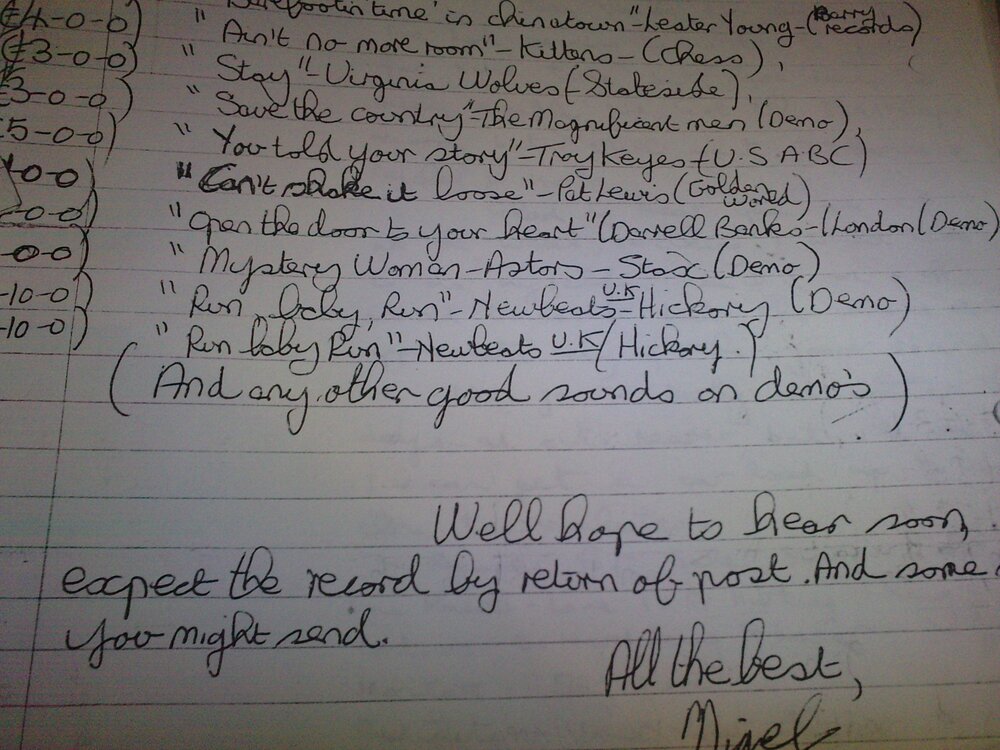 (£4-0-0) "Barefootin' time' in chinatown"-Lester Young-(Barry records)
(£3-0-0) "Ain't no more room"-Kittens-(Chess),
£3-0-0) "Stay"-Virginia Wolves(-Stateside),
£5-0-0) "Save the country"-The Magnificent men (Demo),
-0-0) "You told your story"-Troy Keyes-(U.S ABC)
-0-0) "Can't shake it loose"-Pat Lewis (Golden World)
-0-0) "Open the door to your heart"(Darrell Banks-(London(Demo)
-10-0) "Mystery Woman-Astors-Stax (Demo)
-10-0) "Run, baby, Run"-Newbeats-U.K-Hickory (Demo)
"Run baby Run"-Newbeats U.K/Hickory.)
(And any other good sounds on demo's)
Well hope to hear soon,
expect the record by return of post. And some
you might send.
All the best,
Nigel